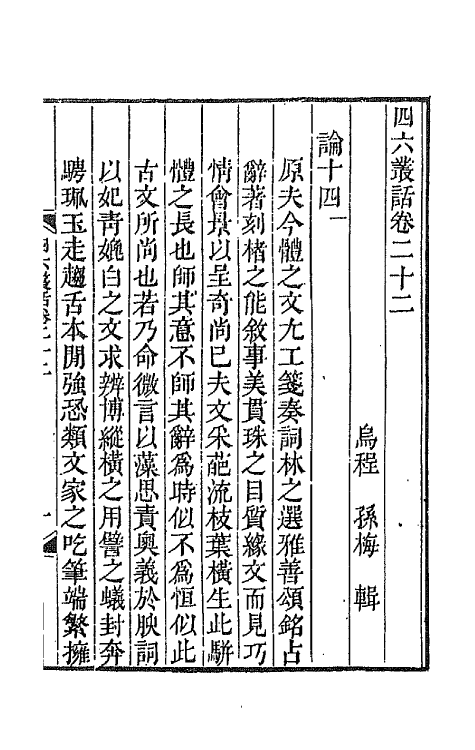 四六叢話卷二十二
烏程 孫梅 輯
論十四
原夫今體之文尤工箋奏詞林之選雅善頌銘占
辭著刻楮之能敘事美貫珠之目質緣文而見巧
情會景以呈奇尚已夫文采葩流枝葉橫生此駢
體之長也師其意不師其辭爲時似不爲恒似此
古文所尚也若乃命微言以藻思責奧義於腴詞
以妃靑媲白之文求辨博縱橫之用譬之蟻封奔
騁珮玉走趨舌本閒強恐類文家之吃筆端繁擁
四六叢話卷二十二
一